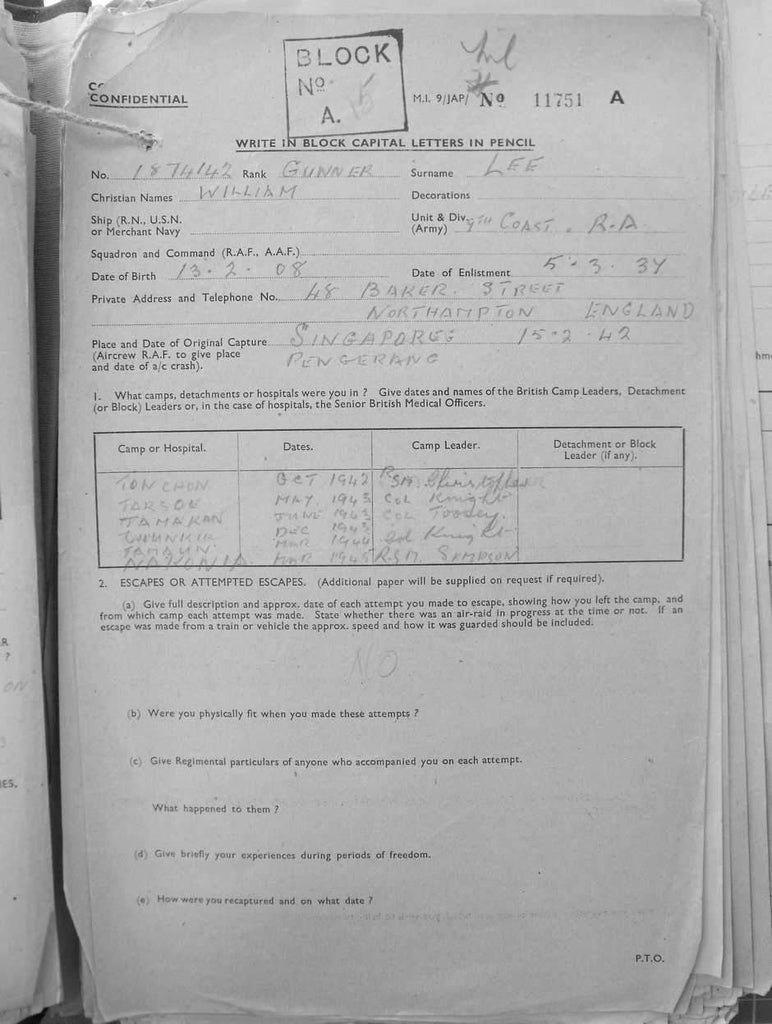 BLOCK
No.
A.
CONFIDENTIAL
M.I. 9/JAP/ No 11751 A
WRITE IN BLOCK CAPITAL LETTERS IN PENCIL
No. 1874142 Rank GUNNER Surname LEE
Christian Names WILLIAM Decorations
Ship (R.N., U.S.N. or Merchant Navy
Unit & Div. (Army) 9TH COAST. R.A.
Squadron and Command (R.A.F., A.A.F.)
Date of Birth 13.2.08 Date of Enlistment 5.3.34
Private Address and Telephone No. 48 BAKER. STREET
NORTHAMPTON ENGLAND
Place and Date of Original Capture SINGAPORE 15.2.42
(Aircrew R.A.F. to give place PENGERANG
and date of a/c crash).
1. What camps, detachments or hospitals were you in ? Give dates and names of the British Camp Leaders, Detachment
(or Block) Leaders or, in the case of hospitals, the Senior British Medical Officers.
Camp or Hospital. Dates. Camp Leader. Detachment or Block
Leader (if any).
TONCHON OCT 1942 RSM
TARSOE MAY 1943 COL Knight
TAMAKAN JUNE 1943 COL Toosey.
DEC 1943 Col Knight
MAR 1944
MAR 1945 R.S.M
2. ESCAPES OR ATTEMPTED ESCAPES. (Additional paper will be supplied on request if required).
(a) Give full description and approx. date of each attempt you made to escape, showing how you left the camp, and
from which camp each attempt was made. State whether there was an air-raid in progress at the time or not. If an
escape was made from a train or vehicle the approx. speed and how it was guarded should be included.
NO
(b) Were you physically fit when you made these attempts ?
(c) Give Regimental particulars of anyone who accompanied you on each attempt.
What happened to them ?
(d) Give briefly your experiences during periods of freedom.
(e) How were you recaptured and on what date ?
P.T.O.